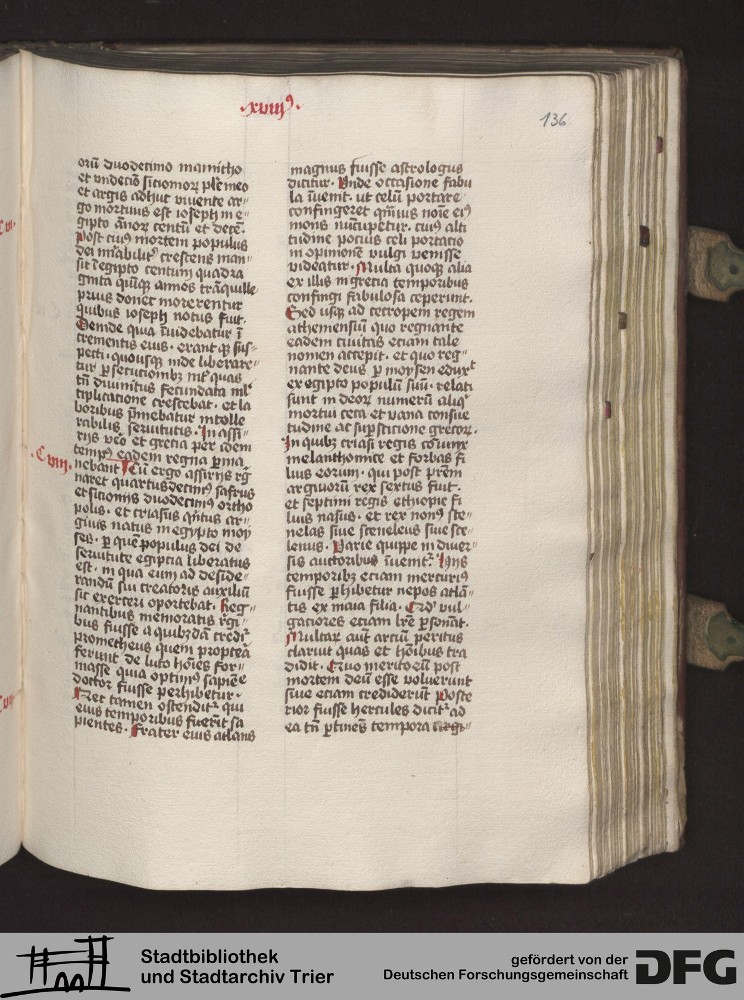 ·xviij⁹·
136
orū duodecimo mamitho
et vndecīo sitiomoꝝ plēmeo
et argis adhuc viuente ar⸗
go mortuus est ioseph in e⸗
gipto ānoꝝ centū et decē·
Post cuiꝰ mortem populus
dei mirabilitʳ crescens man⸗
sit ī egipto centum quadra
ginta quīqꝫ annos trāquille
prius donec morerentur
quibus ioseph notus fuit·
Deinde quia īuidebatur ī
crementis eius· erant qꝫ sus⸗
pecti· quousqꝫ inde liberare⸗
tur ꝑsecutiombꝫ
tn̄ diuinitus fecundata ml̄
tiplicatione crescebat· et la
boribus p̄mebatur intolle
rabilis seruitutis· In assi⸗
rijs vero et grecia per idem
tempꝰ eadem regna ꝑma⸗
·C viij· nebant Cū ergo assirijs rg̅
naret quartusdecimꝰ safrus
et sitiomijs duodecimꝰ ortho
polis· et criasus qn̄tus ar⸗
giuis natus in egypto moy
ses· ꝑ quē populus dei de
seruitute egiptia liberatus
est· in qua eum ad deside⸗
randū sui creatoris auxiliū
sic exerceri oportebat· Reg⸗
nantibus memoratis rg̅i⸗
bus fuisse a quibꝫdā credit⁠ʳ
prometheus quem proptea
ferunt de luto hōies for⸗
masse quia optimꝰ sapiēe
doctor fuisse perhibetur·
Nec tamen ostenditʳ qui
eius temporibus fuerīt sa
pientes· Frater eius athlans
magnus fuisse astrologus
dicitur· Vnde occasione fabu
la īuenit· ut celū portare
confingeret qm̄uis noīe eiꝰ
mons nūcupetur· cuiꝰ alti
tudine pocius celi portacio
in opinionē vulgi venisse
videatur· Multa quoqꝫ alia
ex illis in grecia temporibus
confingi fabulosa ceperunt·
Sed usqꝫ ad cecropem regem
atheniensiū quo regnante
eadem ciuitas eciam tale
nomen accepit· et quo reg⸗
nante deus ꝑ moysen eduxᵗ
ex egipto populū suū· relati
sunt in deoꝝ numerū aliqᵗ
mortui ceca et vana consue
tudine ac suꝑsticione grecoꝝ·
In quibꝫ criasi regis coniunx
melanthomice et forbas fi
lius eorum· qui post prēm
argiuorū rex sextus fuit·
et septimi regis ethiopis fi
lius nasus· et rex nonꝰ ste⸗
nelas siue steneleus siue ste⸗
lenus· Varie quippe in diuer⸗
sis auctoribus īuemtʳ· Hijs
temporibꝫ eciam mercuriꝰ
fuisse ꝑhibetur nepos atlā⸗
tis ex maia filia· Qd̓ vul⸗
gaciores eciam lr̄e ꝑsonāt·
Multaꝝ aut̄ arciū peritus
claruit quas et hoībus tra
didit· Quo merito eū post
mortem deū esse voluerunt
siue eciam crediderūt Poste
rior fuisse hercules dicitʳ ad
ea tn̄ ꝑtinēs tempora argi⸗
Stadtbibliothek
und Stadtarchiv Trier
gefördert von der
Deutschen Forschungsgemeinschaft
DFG